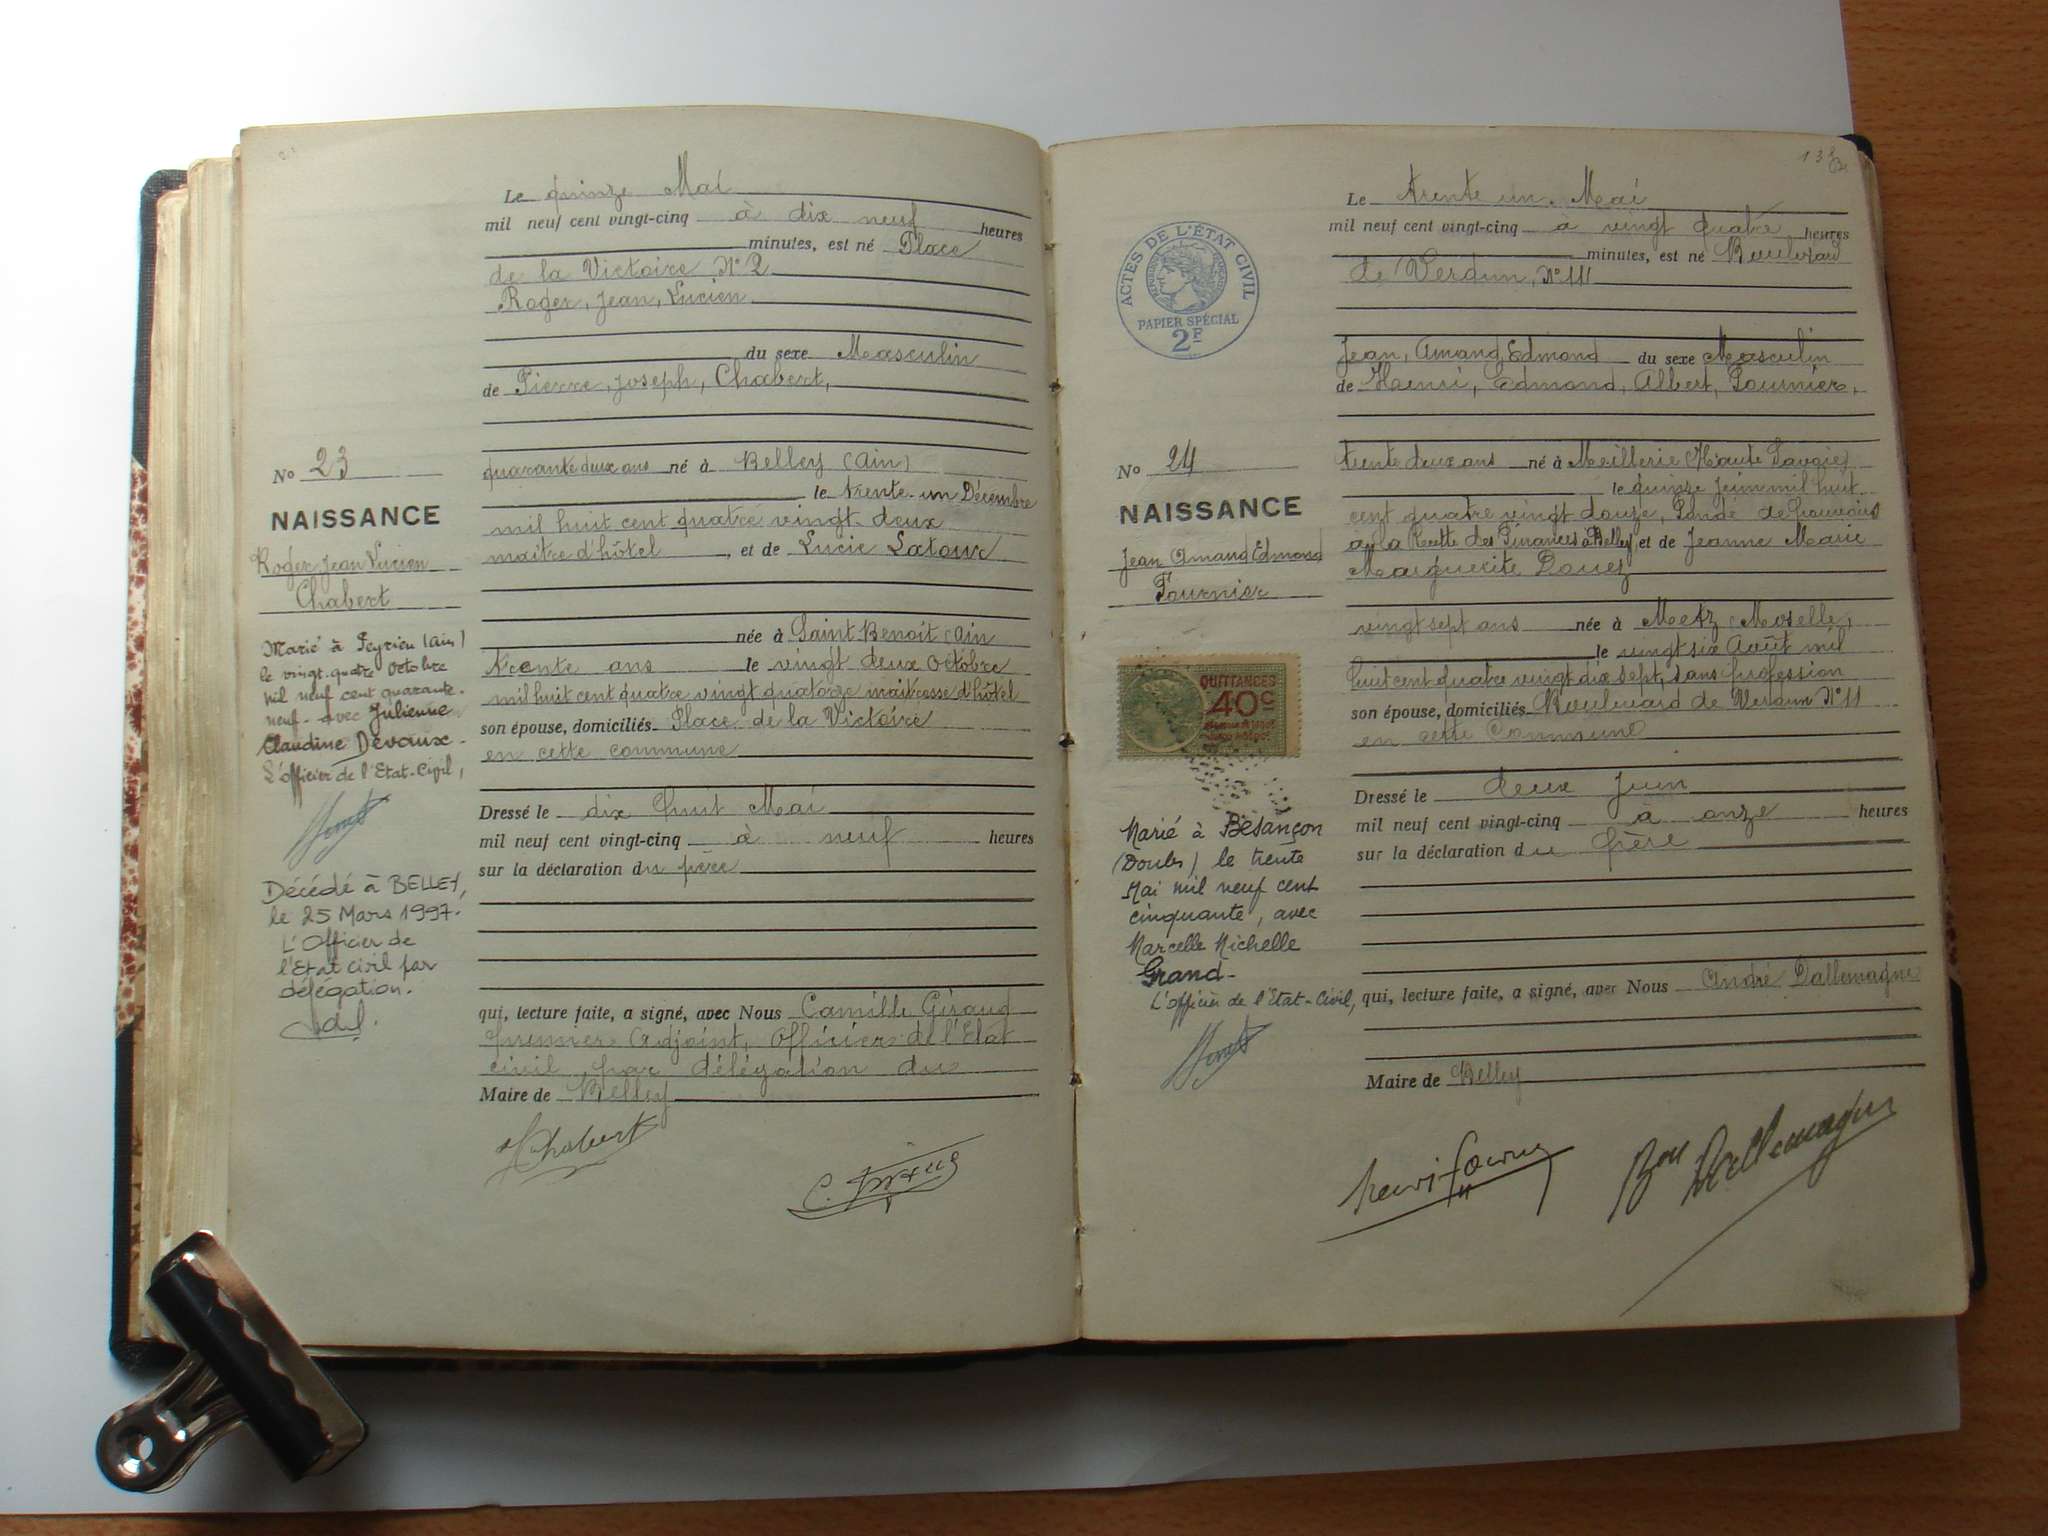 Le quinze Mai
mil neuf cent vingt-cinq à dix neuf heures
minutes, est né Place
de la Victoire N° 2
Roger, Jean, Lucien
du sexe Masculin
de Pierre, Joseph, Chabert,
No 23
quarante deux ans né à Belley (Ain)
le trente-un Décembre
NAISSANCE
mil huit cent quatre vingt-deux
maître d'hôtel, et de Lucie Latour
Roger Jean Lucien
Chabert
née à Saint Benoit (Ain
trente ans le vingt deux Octobre
mil huit cent quatre vingt quatorze maitresse d'hôtel
son épouse, domiciliés Place de la Victoire
en cette commune
Marié à Peyrieu (Ain)
le vingt-quatre Octobre
mil neuf cent quarante-
neuf- avec Julienne
Claudine Devaux-
L'officier de l'Etat-Civil,
Dressé le dix huit Mai
mil neuf cent vingt-cinq à neuf heures
sur la déclaration du père
Décédé à BELLEY,
le 25 Mars 1997.
L'Officier de
l'Etat civil par
délégation.
qui, lecture faite, a signé, avec Nous Camille Giraud
premier Adjoint, Officier de l'Etat
civil par délégation du
Maire de Belley
Chabert
Le trente un Mai
mil neuf cent vingt-cinq à vingt quatre heures
minutes, est né Boulevard
de Verdun, N° 11
ACTES DE L'ÉTAT CIVIL
PAPIER SPÉCIAL
2F
Jean, Amand, Edmond du sexe Masculin
de Henri, Edmond, Albert, Fournier,
No 24
trente deux ans né à Meillerie (Haute Savoie)
le quinze Juin mil huit
NAISSANCE
cent quatre vingt douze, fondé de pouvoirs
à la Recette des Finances à Belley et de Jeanne Marie
Marguerite Douez
Jean Amand Edmond
Fournier
vingt sept ans née à Metz (Moselle)
le vingt six Août mil
huit cent quatre vingt dix sept, sans profession
son épouse, domiciliés Boulevard de Verdun N° 11
en cette Commune
QUITTANCES
40c
Dressé le deux Juin
mil neuf cent vingt-cinq à onze heures
sur la déclaration du père
Marié à Besançon
(Doubs) le trente
Mai mil neuf cent
cinquante, avec
Marcelle Michelle
Grand-
L'officier de l'Etat-Civil,
qui, lecture faite, a signé, avec Nous André Dallemagne
Maire de Belley
Henri Fournier
Bon Dallemagne